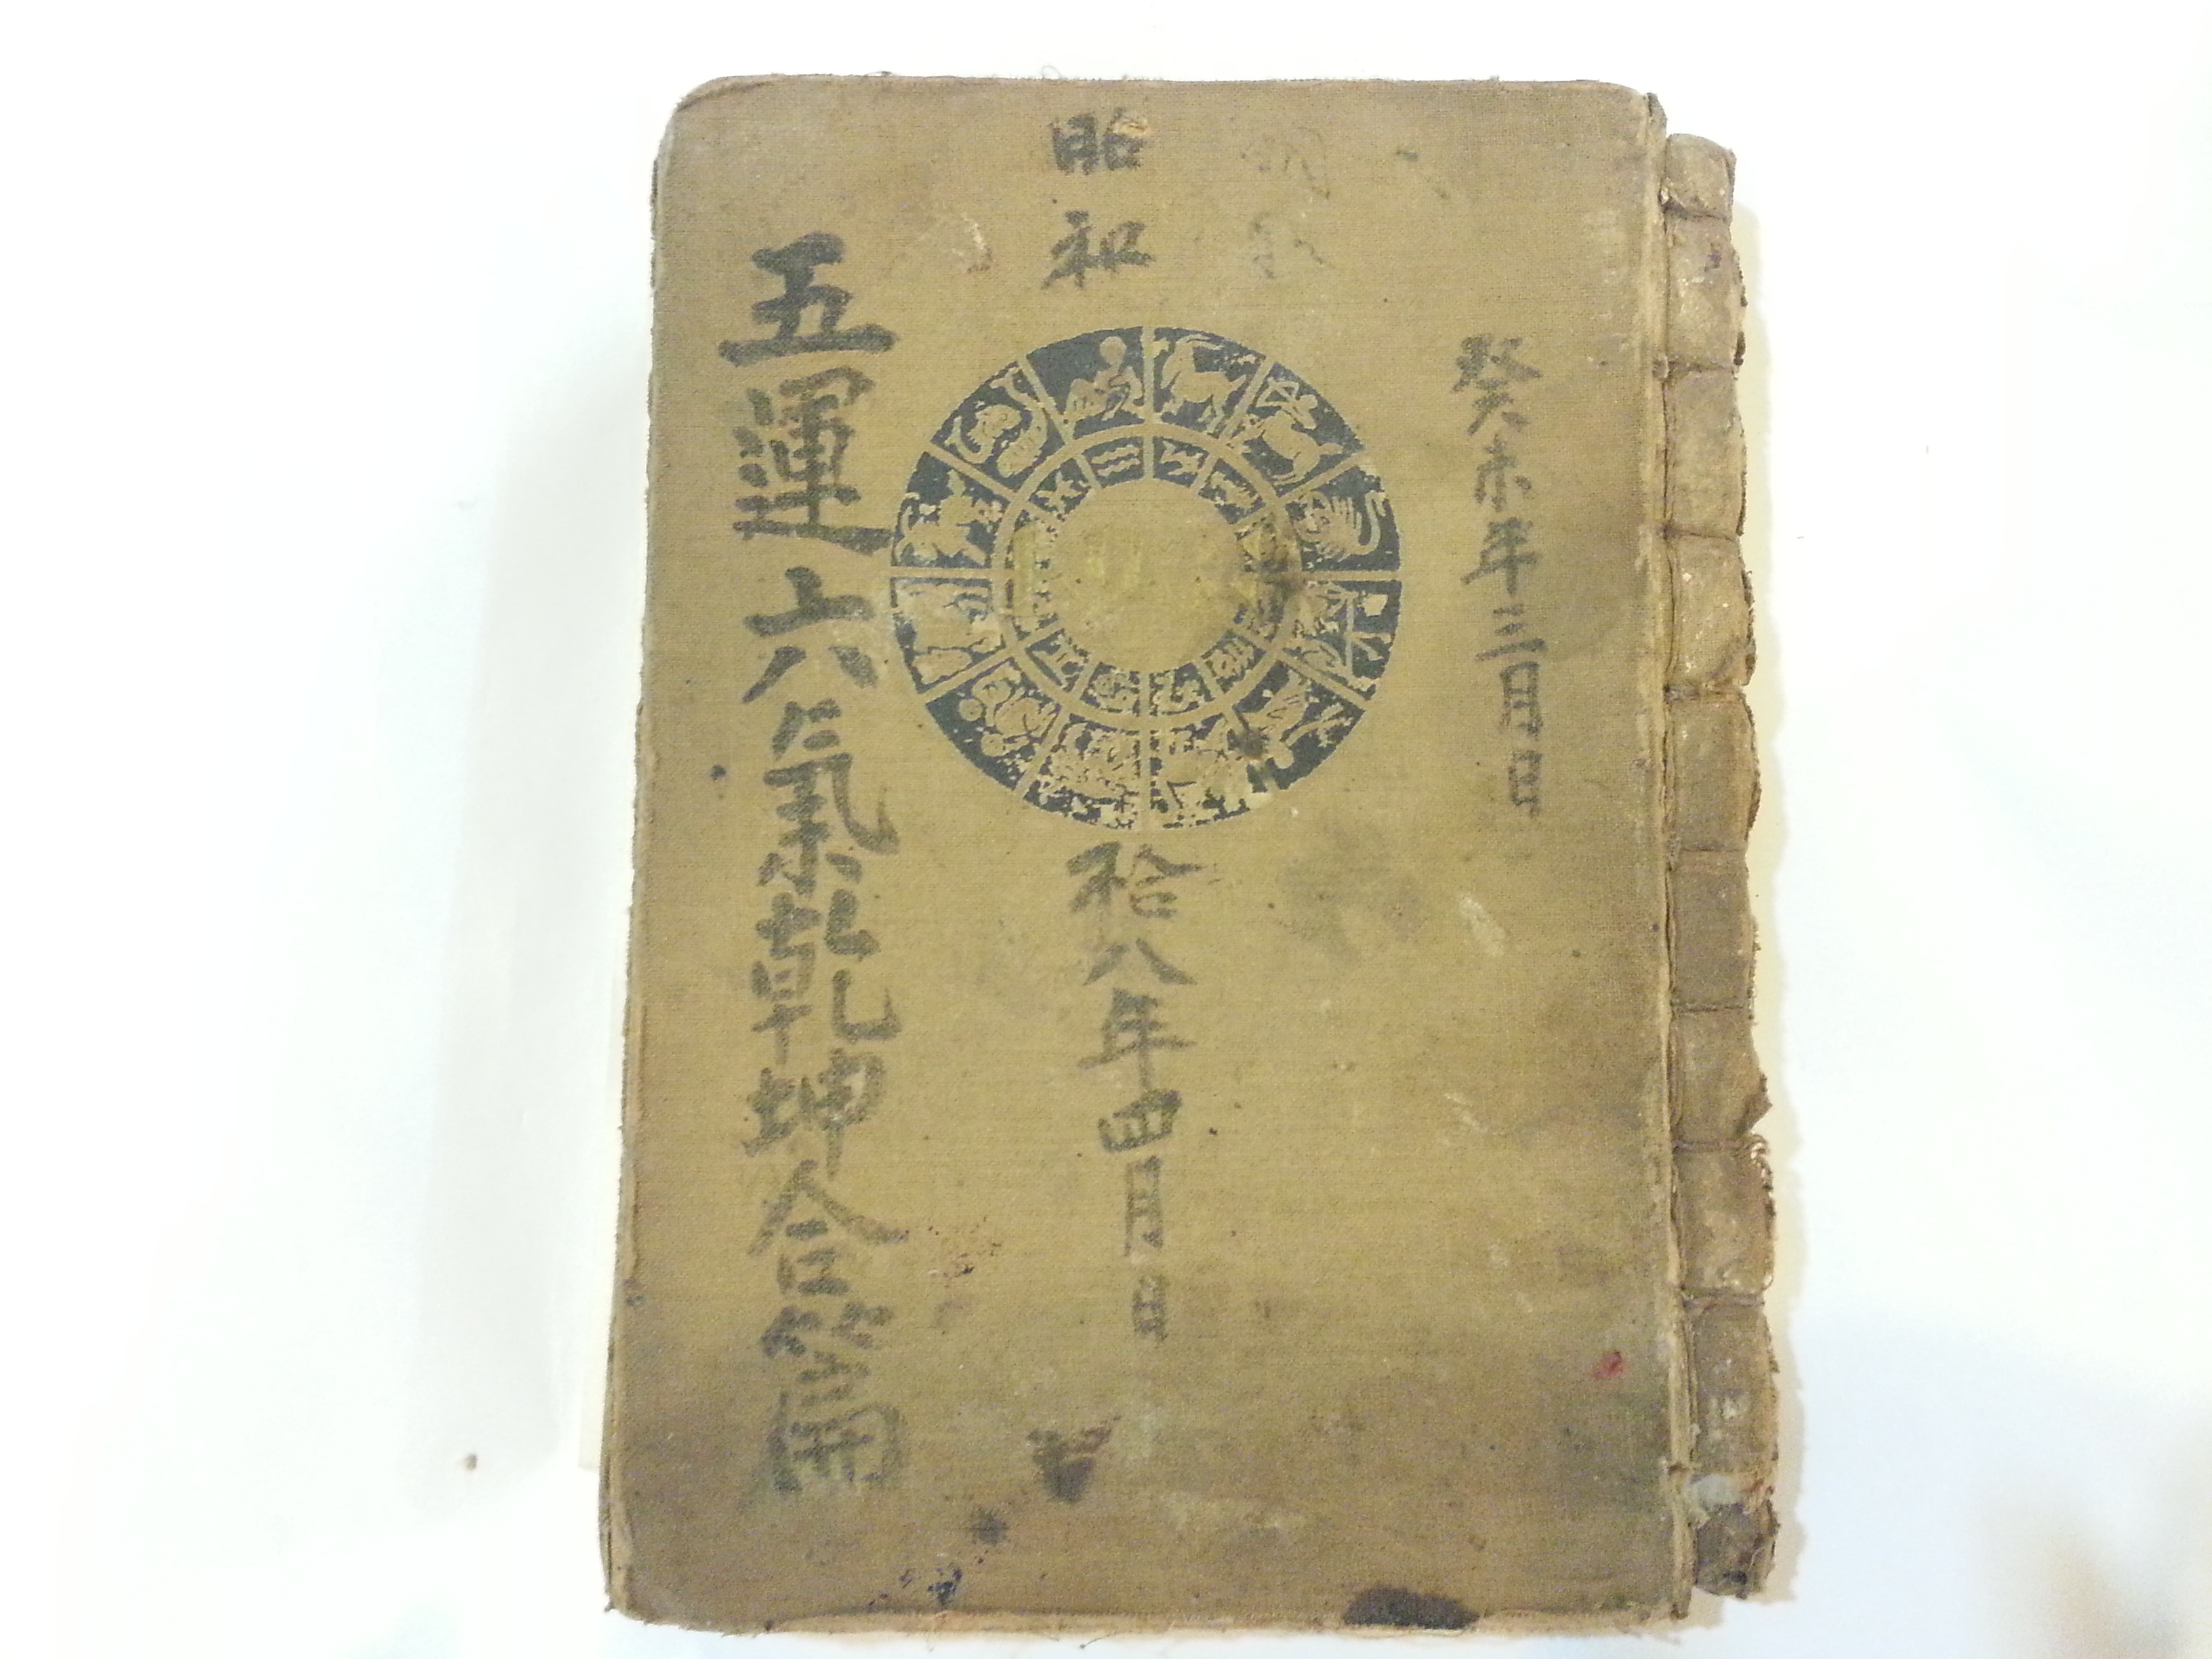 癸未年三月日
昭和
拾八年四月日
五運六氣乾坤合